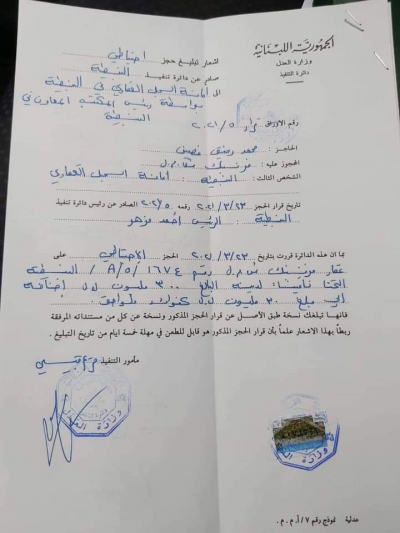 الجمهورية اللبنانية
وزارة العدل
دائرة التنفيذ
اشعار تبليغ حجز احتياطي
صادر عن دائرة تنفيذ النبطية
الى أمانة السجل العقاري في النبطية
بواسطة رئيس المكتب المعاون في
النبطية
رقم الاوراق ٢٠٢١/٥
الحاجز: محمد
المحجوز عليه: فرنسبنك ش.م.ل
الشخص الثالث: أمانة السجل العقاري النبطية
تاريخ قرار الحجز ٢٠٢١/٣/٢٣ رقمه ٢٠٢١/٥ الصادر عن رئيس دائرة تنفيذ
النبطية الرئيس أحمد مزهر
بما ان هذه الدائرة قررت بتاريخ ٢٠٢١/٣/٢٣ الحجز الاحتياطي على
عقار فرنسبنك ش.م.ل رقم ١٦٧٤/A/٥ النبطية
التحتا تأميناً لدينه البالغ ٣٠٠ مليون ل.ل إضافة
الى مبلغ ٣٠ مليون ل.ل كنفقات
فانها تبلغك نسخة طبق الأصل عن قرار الحجز المذكور ونسخة عن كل من مستنداته المرفقة
ربطاً بهذا الاشعار علماً بأن قرار الحجز المذكور هو قابل للطعن في مهلة خمسة ايام من تاريخ التبليغ.
مأمور التنفيذ
عدلية نموذج رقم ٧/ أ. م. م.